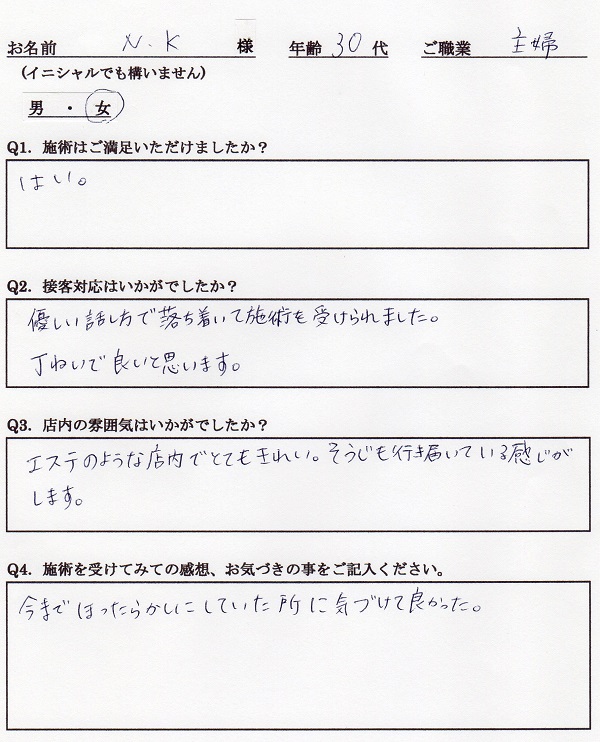 お名前 N.K 様 年齢 30 代 ご職業 主婦
(イニシャルでも構いません)
男 ・ 女
Q1. 施術はご満足いただけましたか？
はい。
Q2. 接客対応はいかがでしたか？
優しい話し方で落ち着いて施術を受けられました。
丁ねいで良いと思います。
Q3. 店内の雰囲気はいかがでしたか？
エステのような店内でとてもきれい。そうじも行き届いている感じが
します。
Q4. 施術を受けてみての感想、お気づきの事をご記入ください。
今までほったらかしにしていた所に気づけて良かった。